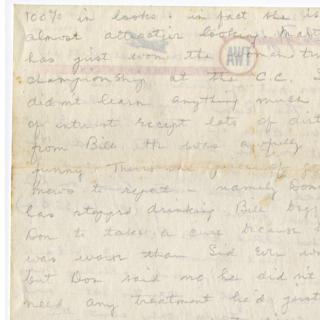 100% in looks. in fact she is
almost attractive looking. Matt
has just won the
championship at the C.C. I
didn't learn anything much
of interest except lots of dirt
from Bill. He was awfully
funny. There's one piece of
news to report - namely Don
has stopped drinking. Bill
Don to take a cure because
was worse than Sid ever
but Don said no he didn't
need any treatment he'd just
AWT